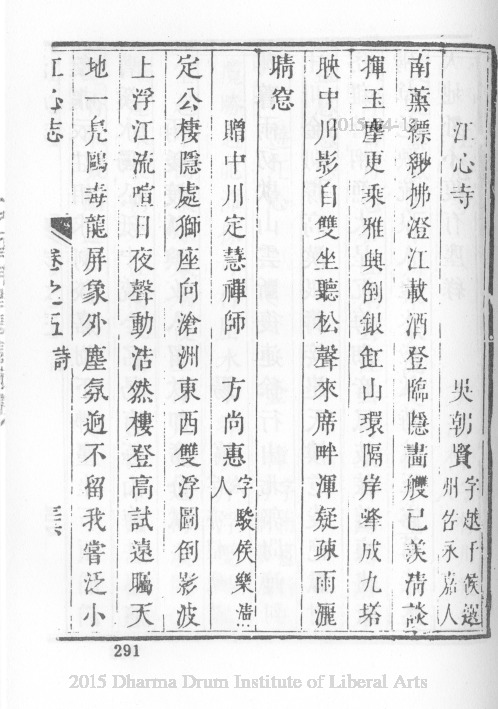 江心寺　吳朝賢字越千候選州咨永嘉人
南薰縹緲拂澄江載酒登臨隱畵艭已羨清談
揮玉麈更乘雅興倒銀缸山環隔岸峯成九塔
映中川影自雙坐聽松聲來席畔渾疑疎雨灑
晴窓
贈中川定慧禪師　方尚惠字駿侯樂清人
定公棲隱處獅座向滄洲東西雙浮圖倒影波
上浮江流喧日夜聲動浩然樓登高試遠矚天
地一鳧鷗毒龍屏象外塵氛逈不留我嘗泛小
江心志　卷之五　詩　三六
291
2015-04-1
2015 Dharma Drum Institute of Liberal Arts